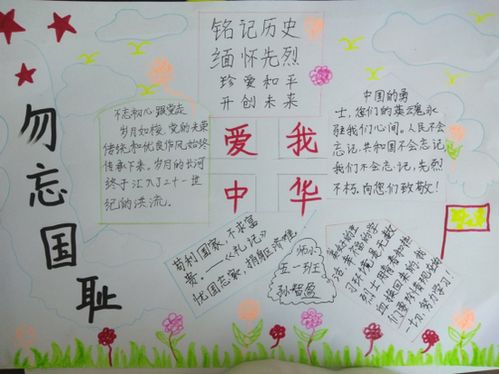 勿忘国耻
铭记历史
缅怀先烈
珍爱和平
开创未来
爱我
中华
不忘初心跟党走
岁月如梭,党的光荣
传统和优良作风始终
传承下来。岁月的长河
终于汇入了二十一世
纪的洪流。
中国的勇
士,您们的英魂永
驻我们心间。人民不会
忘记,共和国不会忘记
我们不会忘记,先烈
不朽,向您们致敬!
苟利国家,不求富
贵。——《礼记》
忧国忘家,捐躯济难
五一班
美好的生
活幸福的学
习环境是无数
烈士用青春和热
血换回来的,我
们要珍惜现在的一
切,努力学习!